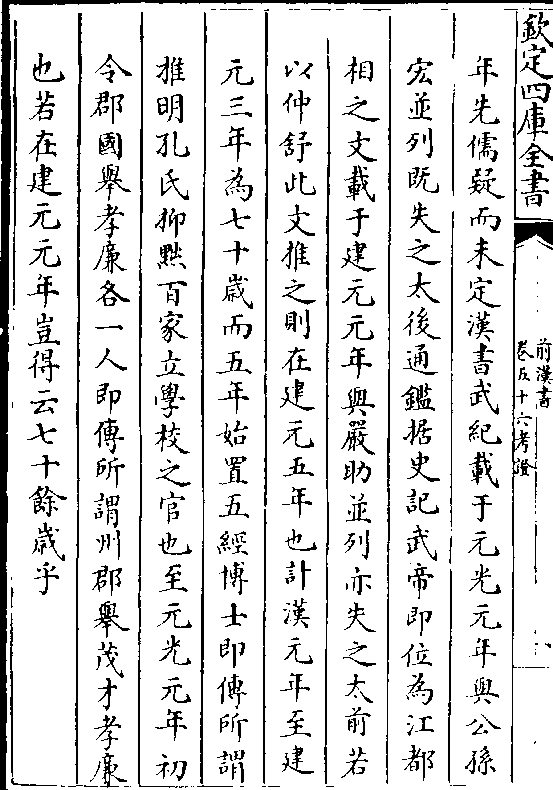 欽定四庫全書
前漢書
卷五十六考證
年先儒疑而未定漢書武紀載于元光元年與公孫
宏並列既失之太後通鑑据史記武帝即位為江都
相之文載于建元元年與嚴助並列亦失之太前若
以仲舒此文推之則在建元五年也計漢元年至建
元三年為七十歲而五年始置五經博士即傳所謂
推明孔氏抑黜百家立學校之官也至元光元年初
令郡國舉孝廉各一人即傳所謂州郡舉茂才孝廉
也若在建元元年豈得云七十餘歲乎